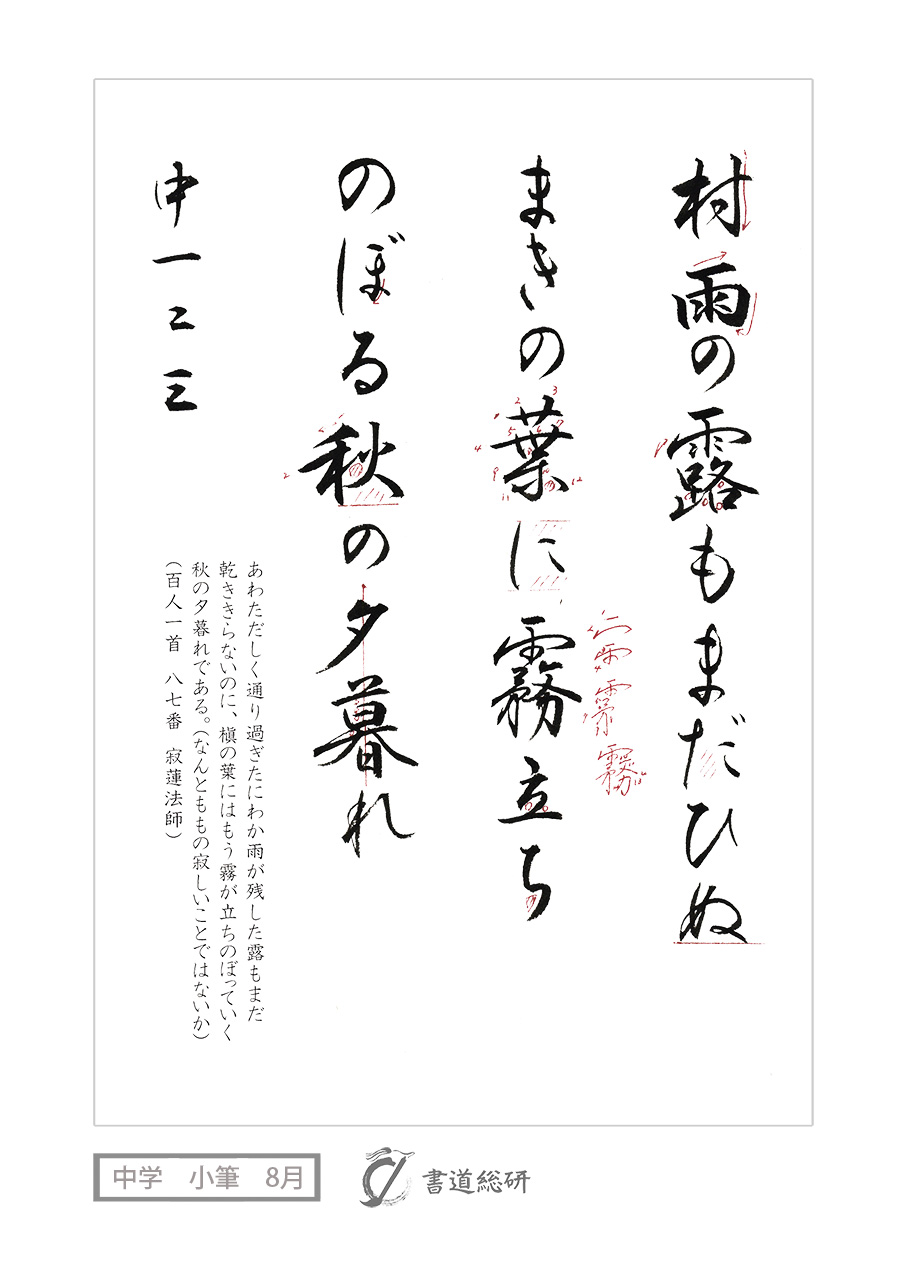 村雨の露もまだひぬ
まきの葉に霧立ち
のぼる秋の夕暮れ
中一二三
あわただしく通り過ぎたにわか雨が残した露もまだ
乾ききらないのに、槇の葉にはもう霧が立ちのぼっていく
秋の夕暮れである。(なんとももの寂しいことではないか)
(百人一首 八七番 寂蓮法師)
中学 小筆 8月
書道総研